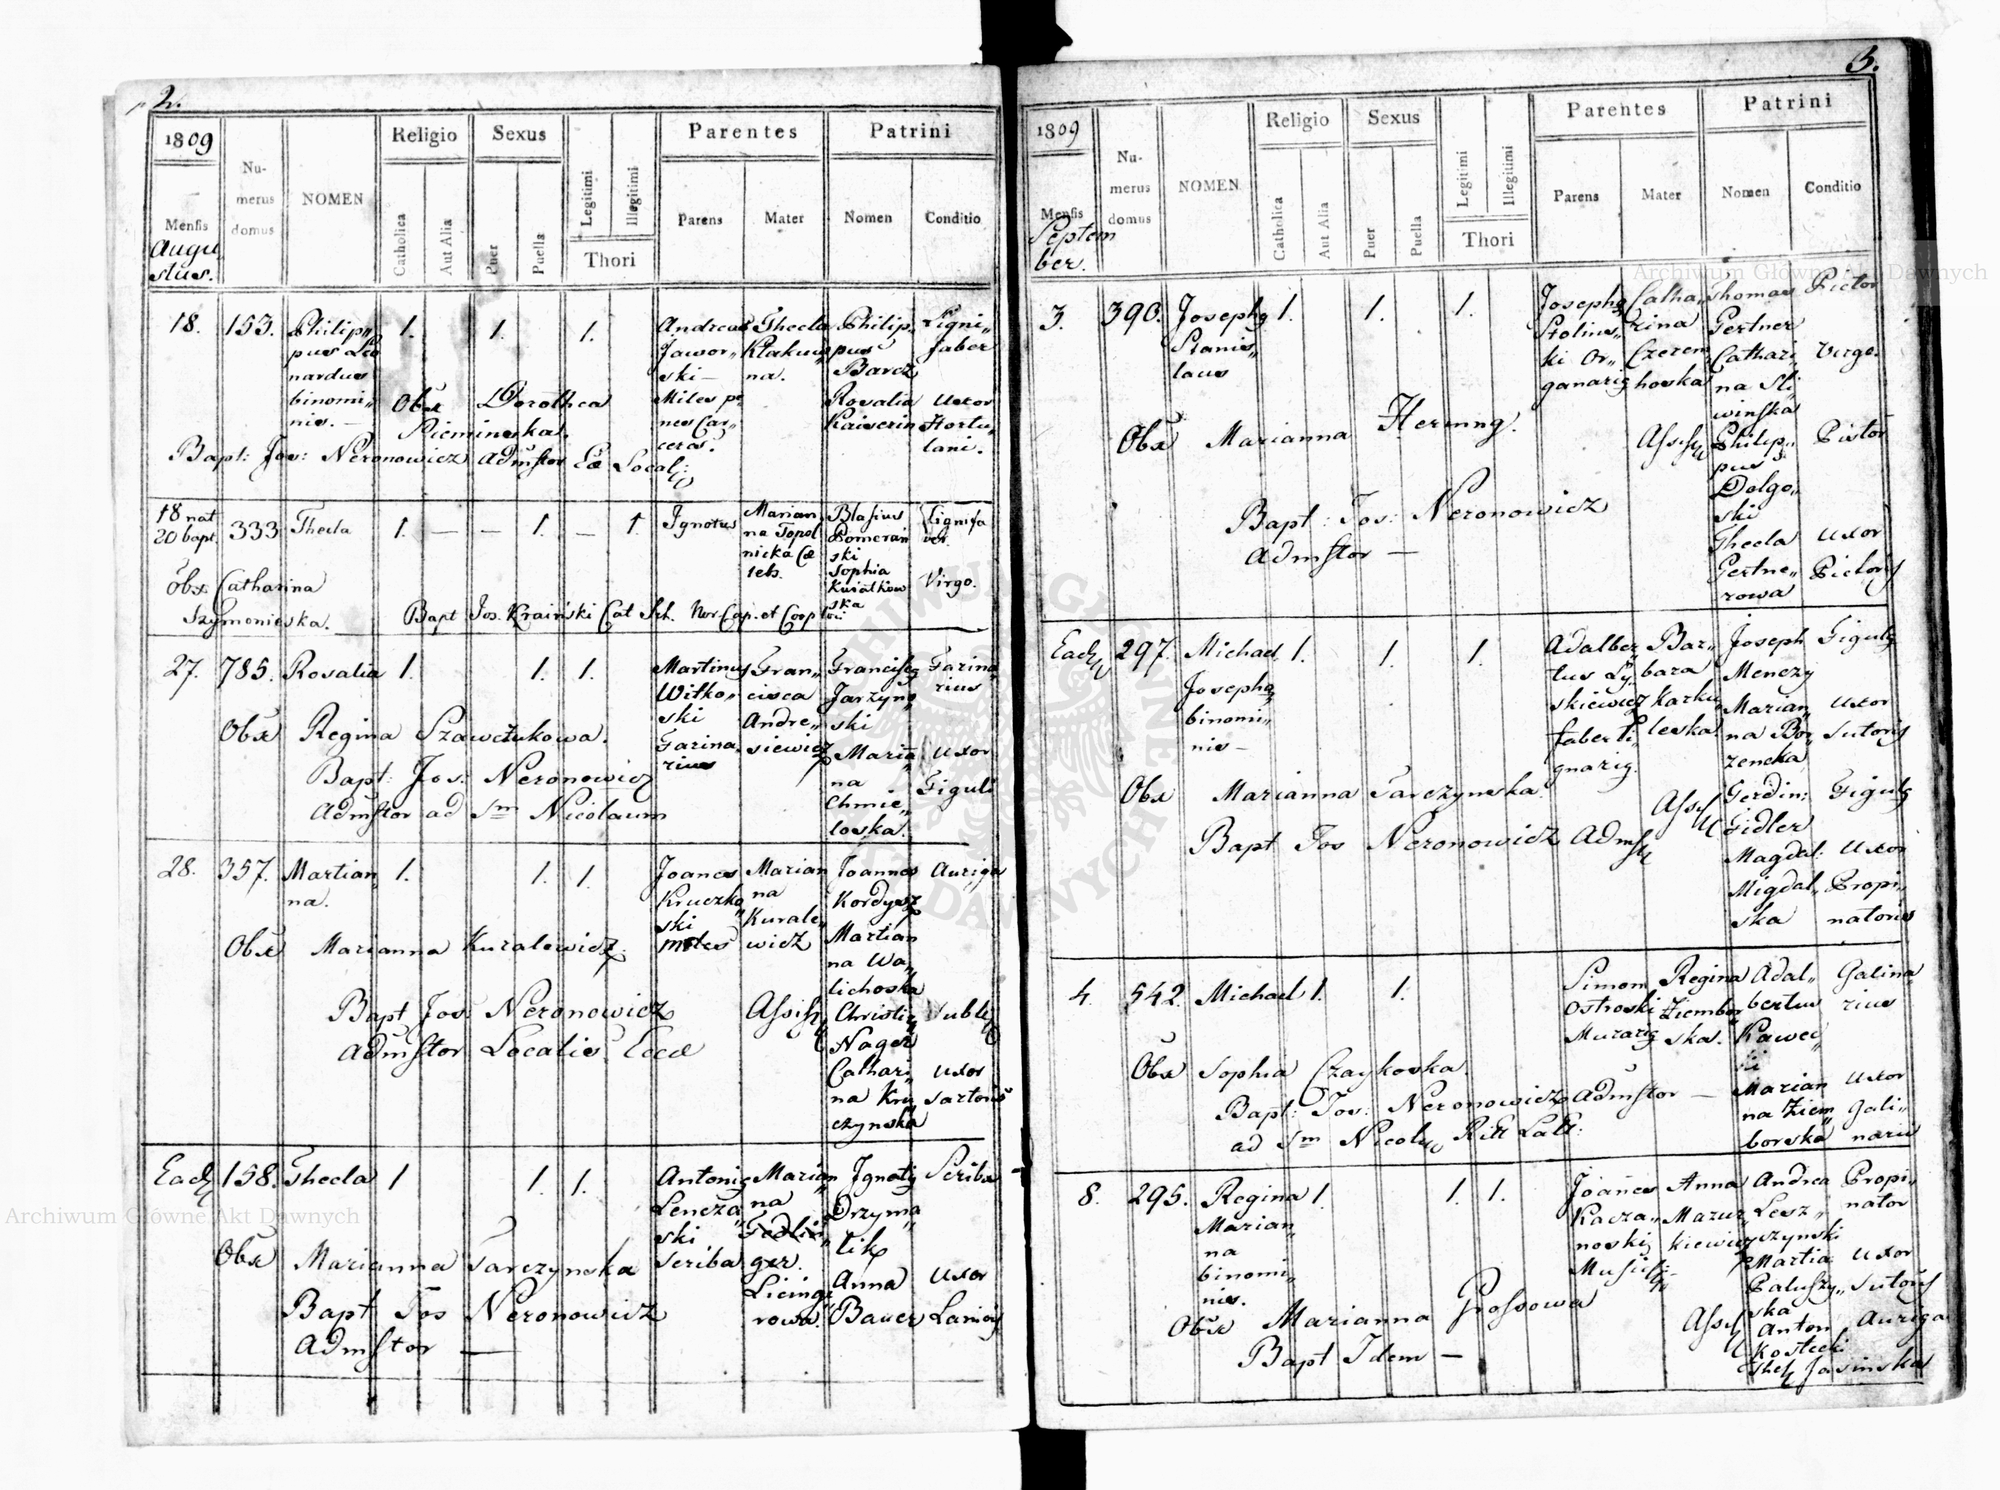 2.
1809
Mensis
Augu
stus.
Nu-
merus
domus
NOMEN
Religio
Catholica
Aut Alia
Sexus
Puer
Puella
Legitimi
Illegitimi
Thori
Parentes
Parens
Mater
Patrini
Nomen
Conditio
18.
153.
Philip„
pus Leo
nardus
binomi„
nis. —
1.
1.
1.
Andreas
Jawor„
ski —
Miles pe
nes Car„
ceres.
Thecla
Kłaku„
na.
Philip„
pus
Barcz
Rosalia
Kaiserin
Ligni„
faber
Uxor
Hortu„
lani.
Obx Dorothea
Sieminska.
Bapt: Jos: Neronowicz Admstor Ec Local:
18 nat
20 bapt.
333
Thecla
1. — — 1. — 1
Ignotus
Marian
na Topol
nicka Cæ
lebs.
Blasius
Pomeran
ski
Sophia
Kwiatkow
ska
Lignifa
ber.
Virgo.
Obx Catharina
Szymonieska.
Bapt Jos. Kraiński Cat Sch. Nor Cap. et Coop
27.
785.
Rosalia
1.
1.
1.
Martinus
Witko„
ski
Farina„
rius
Fran„
cisca
Andre„
siewicz
Francisc
Jarzyn„
ski
Maria„
na
Chmie„
loska.
Farina„
rius
Uxor
Figuli
Obx Regina Szawczukowa.
Bapt: Jos: Neronowicz
Admstor ad Sm Nicolaum
28.
357.
Martian„
na.
1.
1.
1.
Joanes
Kruczko„
ski
miles
Marian
na
Kurale„
wicz
Joannes
Kordysz
Martian
na Wa„
lichoska
Auriga
Obx Marianna Kuralewicz.
Bapt Jos: Neronowicz
Admstor Localis Eccl
Assis
Nager
Cathari„
na Kru
czynska
Uxor
Sartoris
Ead
158.
Thecla
1
1.
1.
Antoni
Lencza„
ski
scriba
Marian
na
ger.
rowa.
Ignati
Drzyma„
lik
Anna
Bauer
Scriba
Uxor
Lanionis
Obx Marianna Tarczynska
Bapt Jos Neronowicz
Admstor —
3.
1809
Mensis
Septem
ber.
Nu-
merus
domus
NOMEN
Religio
Catholica
Aut Alia
Sexus
Puer
Puella
Legitimi
Illegitimi
Thori
Parentes
Parens
Mater
Patrini
Nomen
Conditio
3.
390.
Joseph
Stanis„
laus
1.
1.
1.
Joseph
Stolins„
ki Or„
ganari
Catha„
rina
Czerem
hoska
Thomas
Gertner
Cathari
na Sli
winska
Philip„
pus
Dolgo„
ski
Thecla
Gertne„
rowa
Pictor
Virgo.
Pistor
Uxor
Pictoris
Obx Marianna Hermng.
Assis
Bapt: Jos: Neronowicz
Admstor —
Ead
297.
Michael
Joseph
binomi„
nis —
1.
1.
1.
Adalber
tus Ly
skiewicz
faber li„
gnari.
Bar„
bara
Karku
leska
Joseph
Menczy
Marian„
na Bo
zencka
Ferdin:
Fidler
Magdal:
Migdal„
ska
Figul
Uxor
Sutoris
Figul
Uxor
Propi„
natoris
Obx Marianna Tarczynska.
Assis
Bapt Jos Neronowicz Adms
4.
542.
Michael
1.
1.
Simon
Ostroski
Murari
Regina
Ziembor
ska.
Adal„
bertus
Kawec„
ki
Marian
na Ziem„
borska
Galina„
rius
Uxor
Gali„
narii
Obx Sophia Czaykoska.
Bapt: Jos: Neronowicz Admstor —
ad Sm Nicol Rit Lat:
8.
295.
Regina
Marian„
na
binomi„
nis.
1.
1.
1.
Joanes
Kacza„
noski
Anna
Mazur„
kiewicz
Andrea
Lesz„
czynski
Martia
Paluszy„
ska
Anton
Kostecki
Jasinska
Propi„
nator
Uxor
Sutoris
Auriga
Obx Marianna Grossowa
Assis
Bapt Idem —
Archiwum Główne Akt Dawnych
Archiwum Główne Akt Dawnych
ARCHIWUM GŁÓWNE AKT DAWNYCH